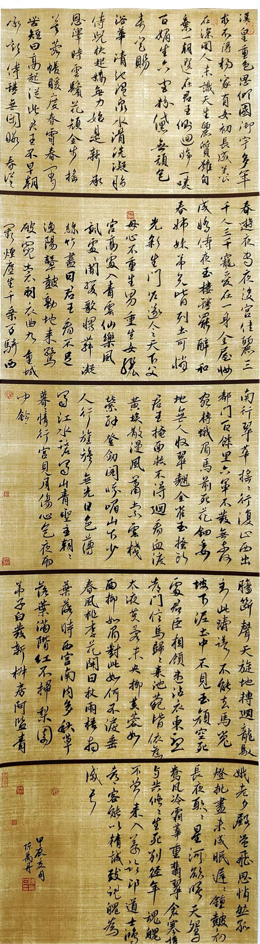 漢皇重色思傾國御宇多年
求不得楊家有女初長成養
在深閨人未識天生麗質難自
棄一朝選在君王側迴眸一笑
百媚生六宮粉黛無顏色
春寒賜
浴華清池溫泉水滑洗凝脂
侍兒扶起嬌無力始是新承
恩澤時雲鬢花顏金步搖
芙蓉帳暖度春宵春宵
苦短日高起從此君王不早朝
承歡侍宴無閒暇春從
春遊夜專夜後宮佳麗三
千人三千寵愛在一身金屋妝
成嬌侍夜玉樓宴罷醉和
春姊妹弟兄皆列土可憐
光彩生門戶遂令天下父
母心不重生男重生女驪
宮高處入青雲仙樂風
飄處處聞緩歌慢舞凝
絲竹盡日君王看不足
漁陽鼙鼓動地來驚
破霓裳羽衣曲九重城
闕煙塵生千乘萬騎西
南行翠華搖搖行復止西出
都門百餘里六軍不發無奈何
宛轉蛾眉馬前死花鈿委
地無人收翠翹金雀玉搔頭
君王掩面救不得迴看血淚
黃埃散漫風蕭索雲棧
縈紆登劍閣峨嵋山下少
人行旌旗無光日色薄
蜀江水碧蜀山青聖主朝朝
暮暮情行宮見月傷心色夜雨
鈴
腸斷聲天旋地轉迴龍馭
到此躊躇不能去馬嵬
坡下泥土中不見玉顏空死
處君臣相顧盡沾衣東望
都門信馬歸歸來池苑皆依舊
太液芙蓉未央柳芙蓉如
面柳如眉對此如何不淚垂
春風桃李花開日秋雨梧桐
葉落時西宮南內多秋草
落葉滿階紅不掃梨園
弟子白髮新椒房阿監青
娥老夕殿螢飛思悄然孤
燈挑盡未成眠遲遲鐘鼓初
長夜耿耿星河欲曙天鴛
鴦瓦冷霜華重翡翠衾寒
誰與共悠悠生死別經年魂魄
不曾來入夢臨邛道士鴻
都客能以精誠致魂魄爲
感君
甲辰 月